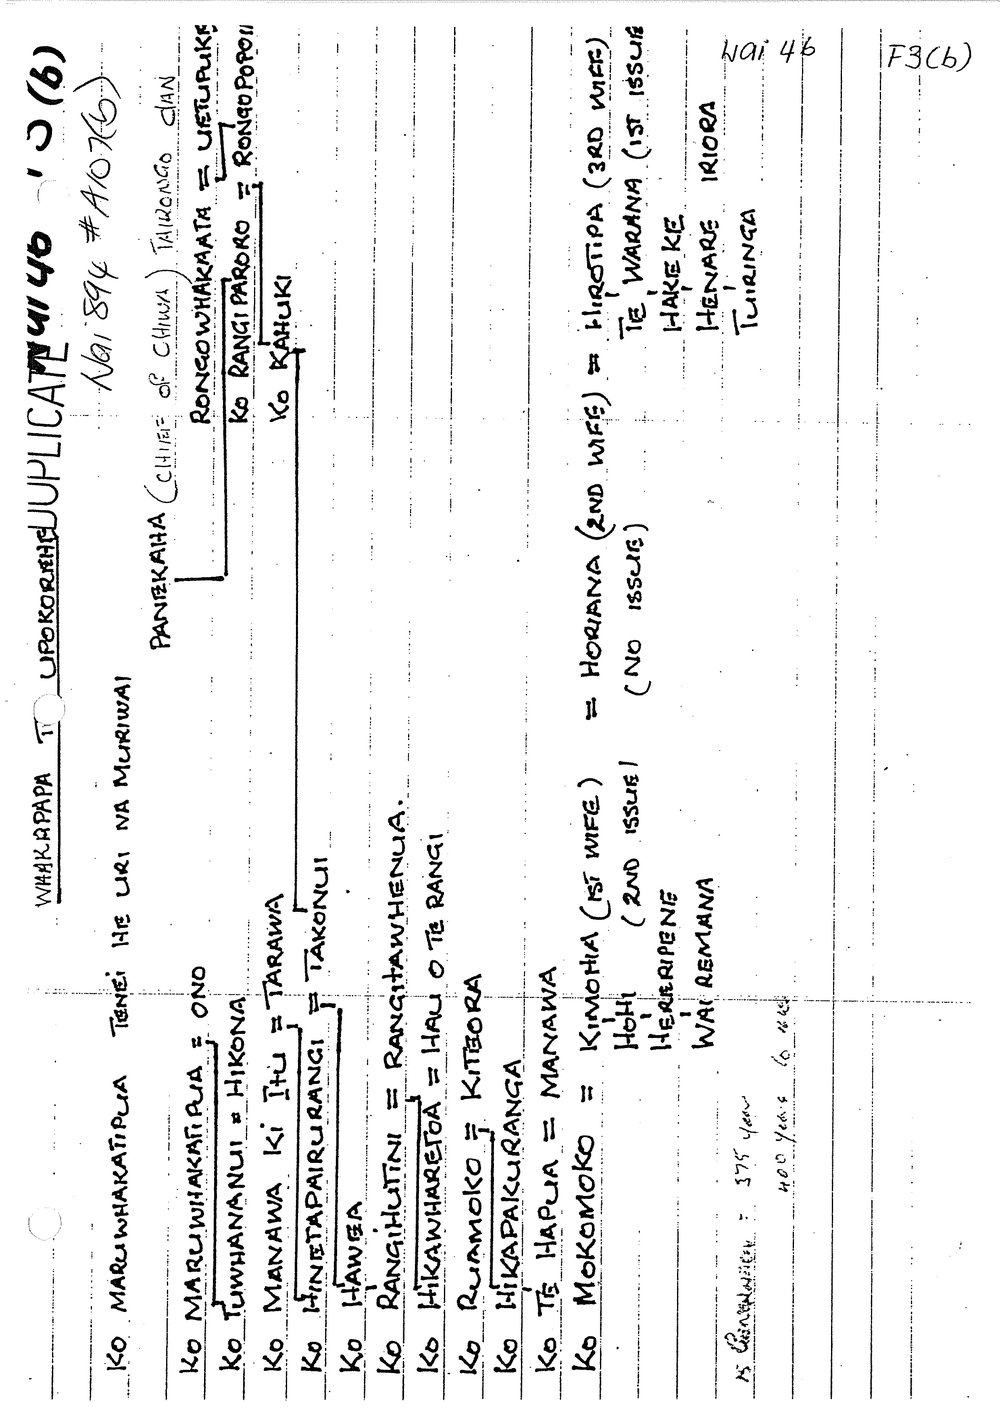 Wai 46
F3(b)
DUPLICATE
Wai 46
(b)
Wai 894 # A107(b)
WHAKAPAPA UPOKOREHE
KO MARUWHAKATIPUA TENEI HE URI NA MURIWAI
PANEKAHA (CHIEF OF OHIWA) TAIRONGO CLAN
KO MARUWHAKATIPUA = ONO
RONGOWHAKAATA = UETUPUKE
KO TUWHANANUI = HIKONA
KO RANGIPARORO = RONGOPOPOII
KO MANAWA KI ITU = TARAWA
KO KAHUKI
KO HINETAPAIRURANGI = TAKONUI
KO HAWEA
KO RANGIHUTINI = RANGITAWHENUA.
KO HIKAWHARETOA = HAU O TE RANGI
KO RUAMOKO = KITEORA
KO HIKAPAKURANGA
KO TE HAPUA = MANAWA
KO MOKOMOKO = KIMOHIA (1ST WIFE) = HORIANA (2ND WIFE) = HIROTIPA (3RD WIFE)
HOHI (2ND ISSUE) (NO ISSUE) TE WARANA (1ST ISSUE
HERERIPENE HAKEKE
WAI REMANA HENARE IRIORA
TUIRINGA
15 = 375 year
400 years